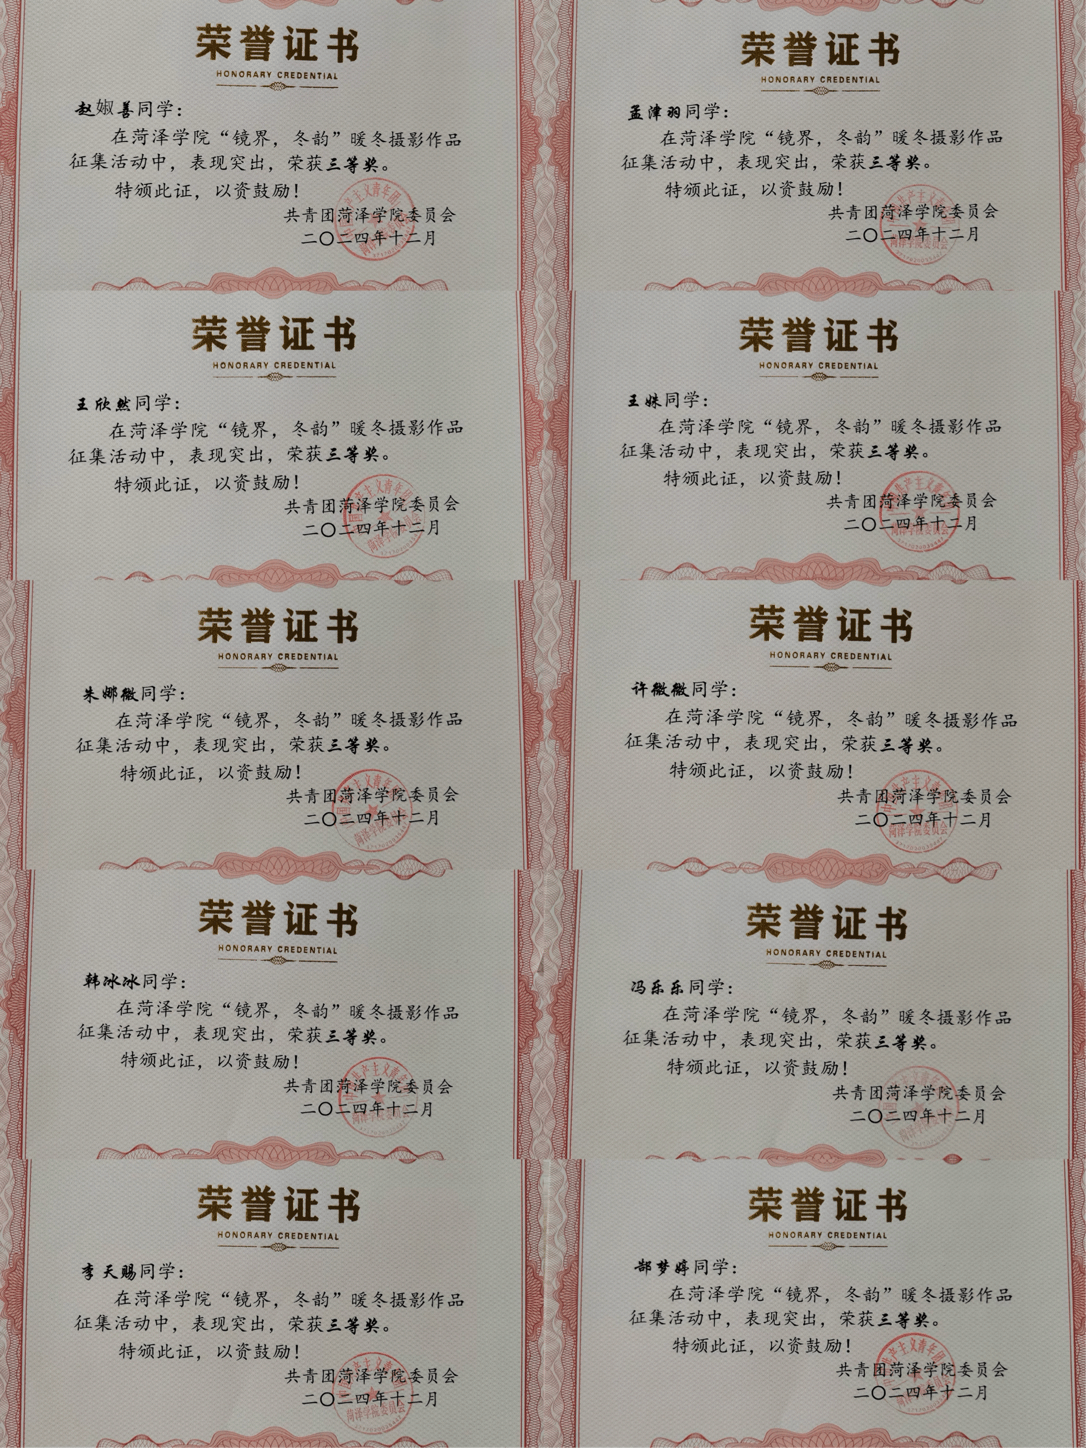 荣誉证书
HONORARY CREDENTIAL
赵婌善同学：
在菏泽学院“镜界，冬韵”暖冬摄影作品
征集活动中，表现突出，荣获三等奖。
特颁此证，以资鼓励！
共青团菏泽学院委员会
二〇二四年十二月
荣誉证书
HONORARY CREDENTIAL
孟津羽同学：
在菏泽学院“镜界，冬韵”暖冬摄影作品
征集活动中，表现突出，荣获三等奖。
特颁此证，以资鼓励！
共青团菏泽学院委员会
二〇二四年十二月
荣誉证书
HONORARY CREDENTIAL
王欣然同学：
在菏泽学院“镜界，冬韵”暖冬摄影作品
征集活动中，表现突出，荣获三等奖。
特颁此证，以资鼓励！
共青团菏泽学院委员会
二〇二四年十二月
荣誉证书
HONORARY CREDENTIAL
王姝同学：
在菏泽学院“镜界，冬韵”暖冬摄影作品
征集活动中，表现突出，荣获三等奖。
特颁此证，以资鼓励！
共青团菏泽学院委员会
二〇二四年十二月
荣誉证书
HONORARY CREDENTIAL
朱娜微同学：
在菏泽学院“镜界，冬韵”暖冬摄影作品
征集活动中，表现突出，荣获三等奖。
特颁此证，以资鼓励！
共青团菏泽学院委员会
二〇二四年十二月
荣誉证书
HONORARY CREDENTIAL
许微微同学：
在菏泽学院“镜界，冬韵”暖冬摄影作品
征集活动中，表现突出，荣获三等奖。
特颁此证，以资鼓励！
共青团菏泽学院委员会
二〇二四年十二月
荣誉证书
HONORARY CREDENTIAL
韩冰冰同学：
在菏泽学院“镜界，冬韵”暖冬摄影作品
征集活动中，表现突出，荣获三等奖。
特颁此证，以资鼓励！
共青团菏泽学院委员会
二〇二四年十二月
荣誉证书
HONORARY CREDENTIAL
冯乐乐同学：
在菏泽学院“镜界，冬韵”暖冬摄影作品
征集活动中，表现突出，荣获三等奖。
特颁此证，以资鼓励！
共青团菏泽学院委员会
二〇二四年十二月
荣誉证书
HONORARY CREDENTIAL
李天赐同学：
在菏泽学院“镜界，冬韵”暖冬摄影作品
征集活动中，表现突出，荣获三等奖。
特颁此证，以资鼓励！
共青团菏泽学院委员会
二〇二四年十二月
荣誉证书
HONORARY CREDENTIAL
郜梦婷同学：
在菏泽学院“镜界，冬韵”暖冬摄影作品
征集活动中，表现突出，荣获三等奖。
特颁此证，以资鼓励！
共青团菏泽学院委员会
二〇二四年十二月